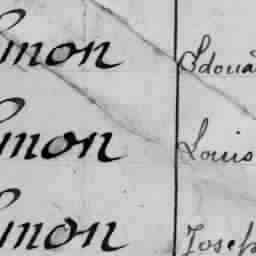 mon Edoua
mon Louis
mon Josep